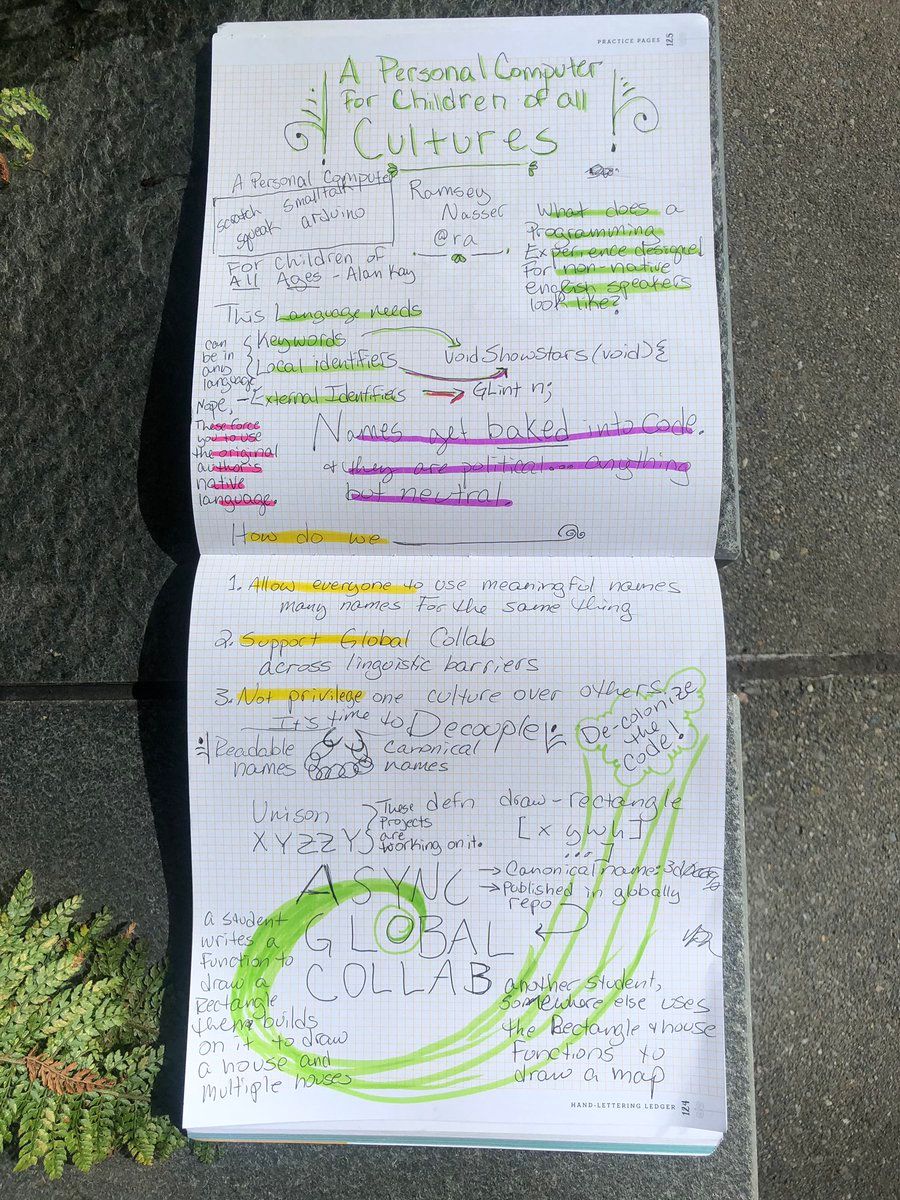 PRACTICE PAGES 125
A Personal Computer
For Children of all
Cultures
A Personal Computer
scratch smalltalk
squeak arduino
For Children of
All Ages - Alan Kay
Ramsey
Nasser
@ra
What does a
Programming
Experience designed
For non-native
english speakers
look like?
This Language needs
can
be in
any
language
Keywords
Local identifiers
void ShowStars (void) {
Nope,
- External Identifiers → GLint n;
These force
you to use
the original
author's
native
language.
Names get baked into Code.
+ they are political... anything
but neutral
How do we
1. Allow everyone to use meaningful names
many names For the same thing
2. Support Global Collab
across linguistic barriers
3. Not privilege one culture over others.
It's time to Decouple
Readable
names
Canonical
names
De-colonize
the
code!
Unison
XYZZY
These
Projects
are
working on it.
defn draw-rectangle
[x y w h]
...]
→ Canonical name:
→ Published in globally
repo
ASYNC
GLOBAL
COLLAB
a student
writes a
Function to
draw a
Rectangle
then builds
on it to draw
a house and
multiple houses
another student,
somewhere else uses
the Rectangle + house
Functions to
draw a map
HAND-LETTERING LEDGER 124